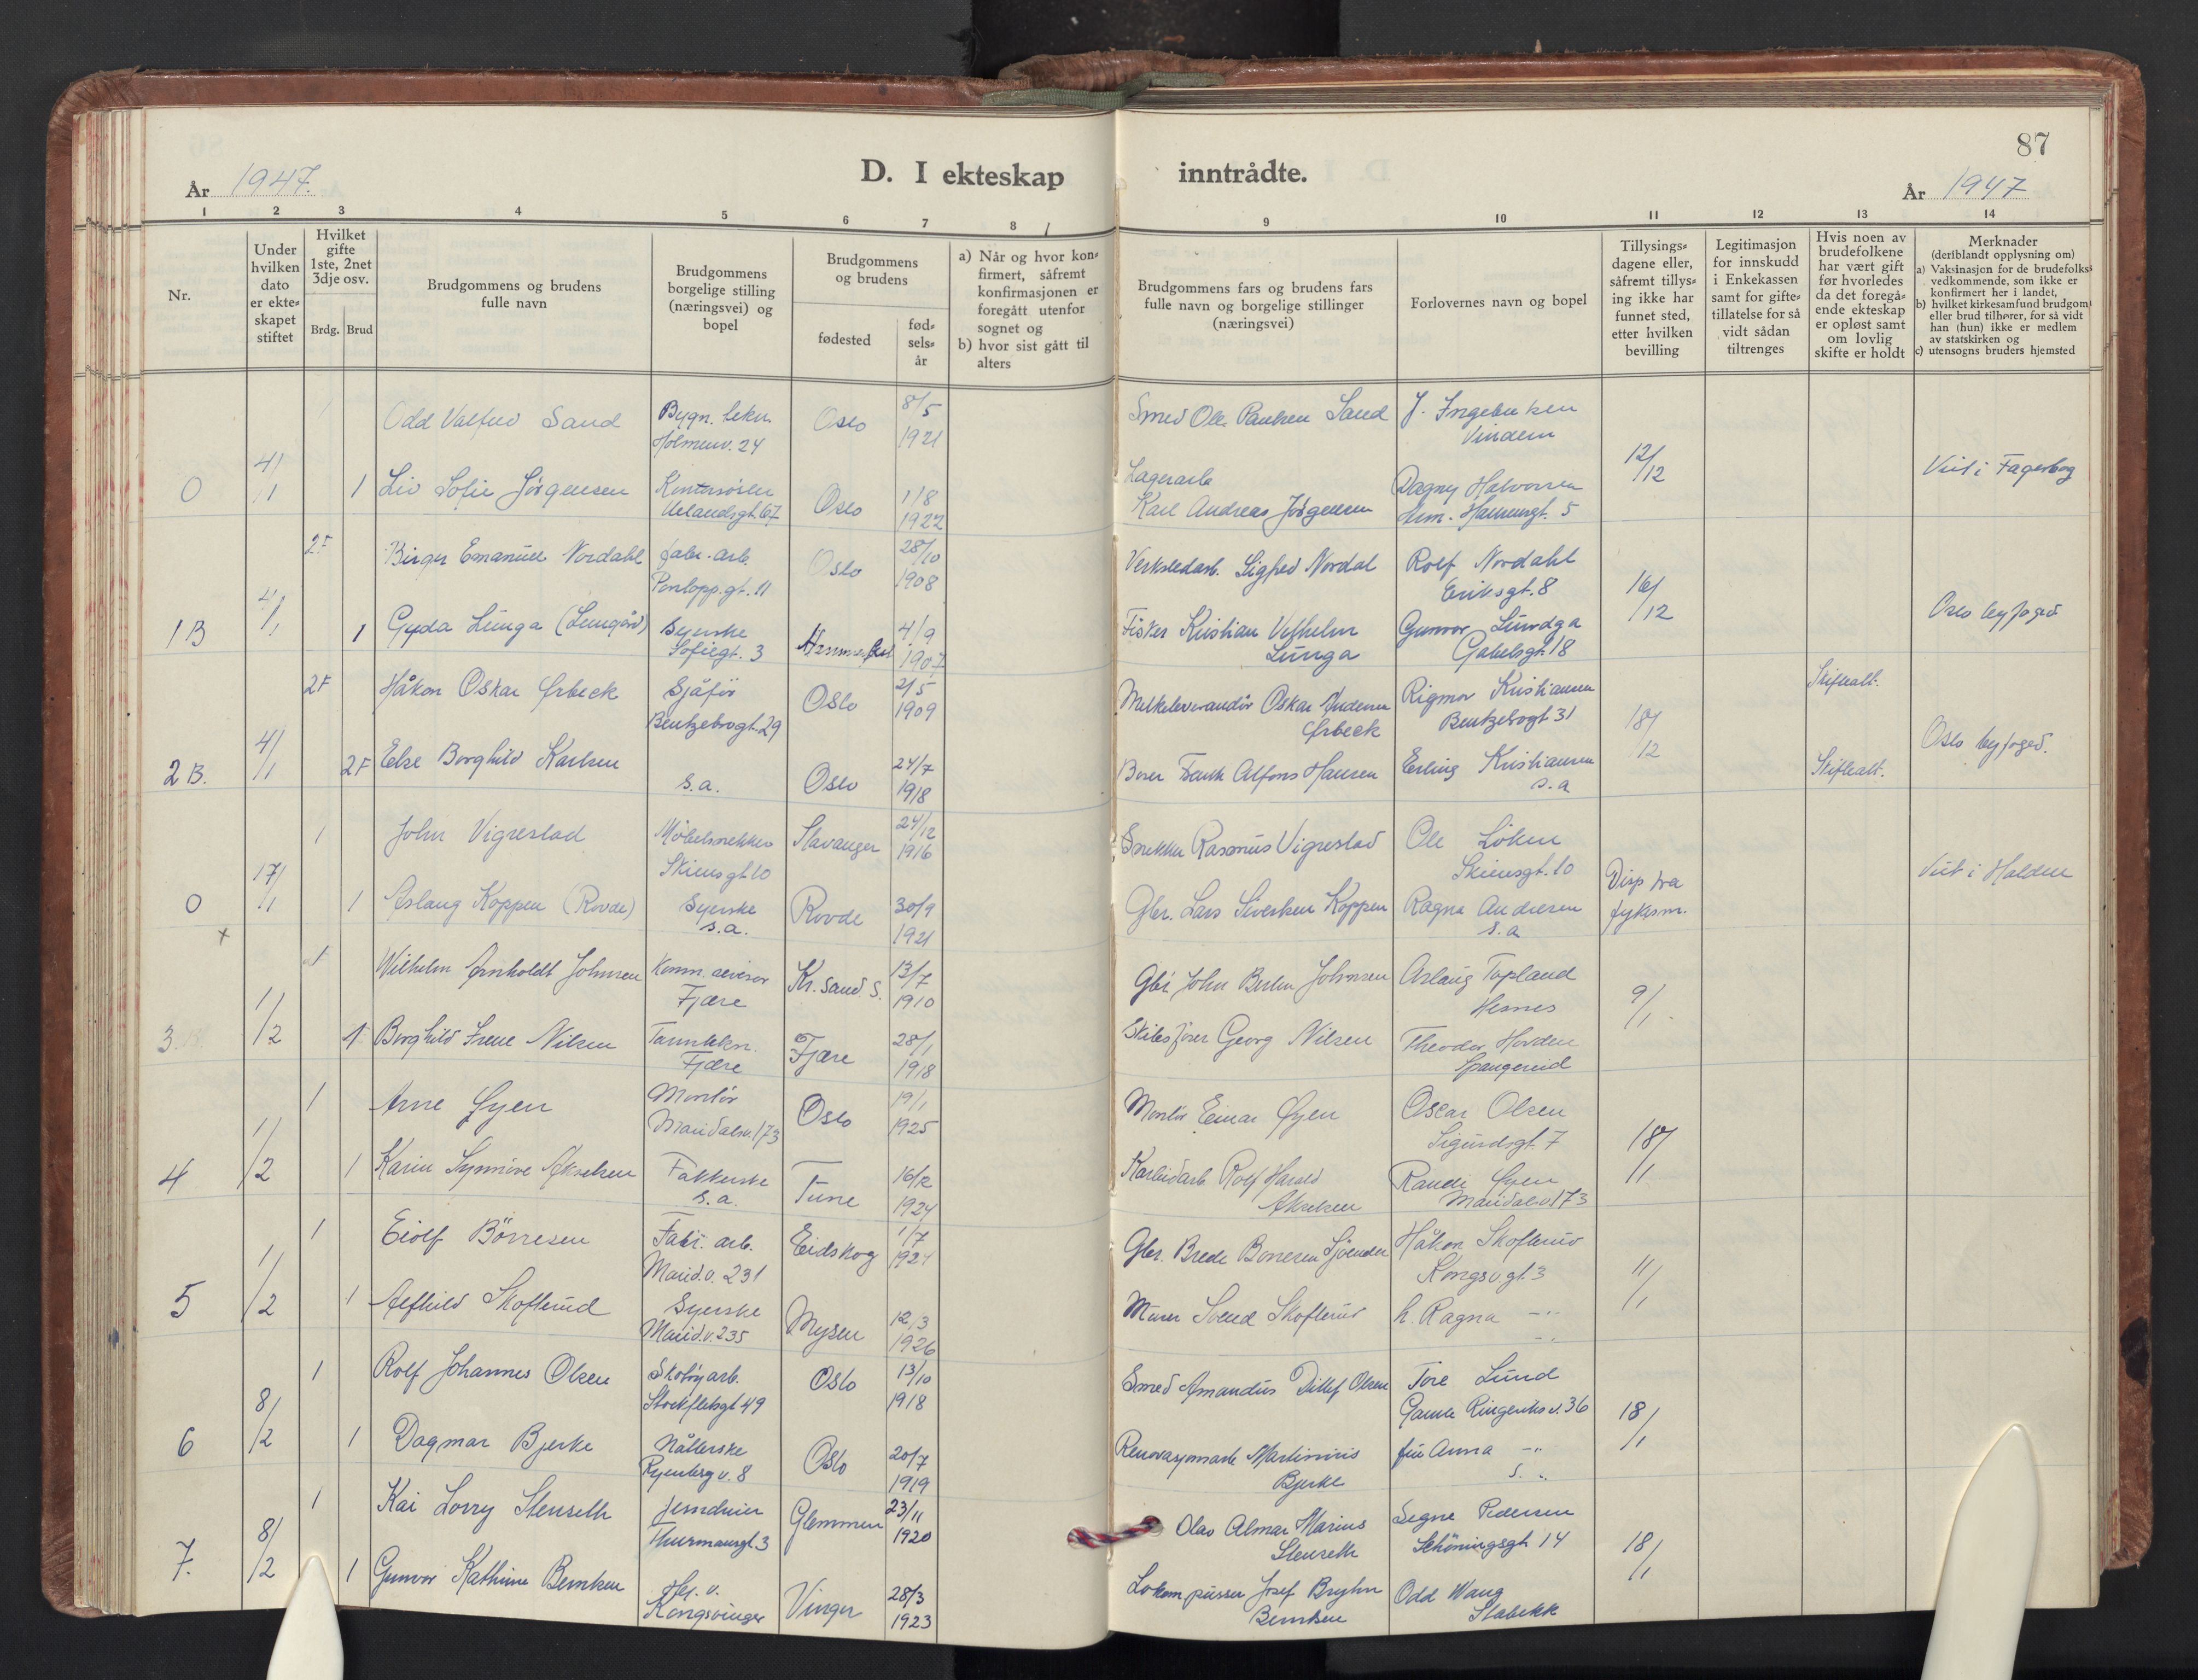 87
År 1947.
D. I ekteskap inntrådte.
År 1947
1 2 3 4 5 6 7 8 9 10 11 12 13 14
Nr.
Under hvilken dato er ekte-skapet stiftet
Hvilket gifte 1ste, 2net 3dje osv.
Brdg. Brud
Brudgommens og brudens fulle navn
Brudgommens borgelige stilling (næringsvei) og bopel
Brudgommens og brudens
fødested
fød-sels-år
a) Når og hvor kon-firmert, såfremt konfirmasjonen er foregått utenfor sognet og
b) hvor sist gått til alters
Brudgommens fars og brudens fars fulle navn og borgelige stillinger (næringsvei)
Forlovernes navn og bopel
Tillysings-dagene eller, såfremt tillys-ing ikke har funnet sted, etter hvilken bevilling
Legitimasjon for innskudd i Enkekassen samt for gifte-tillatelse for så vidt sådan tiltrenges
Hvis noen av brudefolkene har vært gift før hvorledes da det foregå-ende ekteskap er opløst samt om lovlig skifte er holdt
Merknader
(deriblandt opplysning om)
a) Vaksinasjon for de brudefolks vedkommende, som ikke er konfirmert her i landet,
b) hvilket kirkesamfund brudgom eller brud tilhører, for så vidt han (hun) ikke er medlem av statskirken og
c) utensogns bruders hjemsted
Odd Valfred Sand Bygn. tekn. Oslo 8/5 Smed Ole Paulsen Sand
Holmenv. 24 1921 Vindern
0 4/1 1 Liv Sofie Jørgensen Oslo 1/8 Lagerarb. Dagny Halvorsen 12/12 Viet i Fagerborg
Uelandsgt. 67 1922 Karl Andreas Jørgensen 5
2F Birger Emanuel Nordahl fabr. arb. Oslo 28/10 Verkstedarb. Sigfred Nordal Rolf Nordahl
11 1908 Eriksgt. 8
1B 4/1 1 Gyda Lunga Syerske Hammerfest 4/9 Fisker Kristian Vilhelm Gunvor 16/12 Oslo byfoged
Sofiegt. 3 1907 Lunga Gabelsgt. 18
2F Håkon Oskar Ørbeck Sjåfør Oslo 2/5 Melkeleverandør Oskar Andersen Rigmor Kristiansen Skifteatt.
Bentzebrogt. 29 1909 Ørbeck Bentzebrogt. 31
2B. 4/1 2F Else Borghild Karlsen s.a. Oslo 24/7 Frank Alfons Hansen Erling Kristiansen 18/12 Skifteatt. Oslo byfoged.
1918 s.a
1 John Vigrestad Møbelsnekker Stavanger 24/12 Snekker Rasmus Vigrestad Ole Löken
Skiensgt. 10 1916 Skiensgt. 10
0 17/1 1 Aslaug Koppen (Rovde) Syerske Rovde 30/9 Gbr. Lars Sivertsen Koppen Ragna Andresen Disp fra Viet i Halden
s.a. 1921 s.a fylkesm.
x
1 Wilhelm Arnholdt Johnsen Komm. revisor Kr. sand S. 13/7 Gbr. John Johnsen Aslaug Topland
Fjære 1910 Hesnes
3. 1/2 1 Borghild Irene Nilsen Tanntekn. Fjære 28/1 Skibsfører Georg Nilsen Theodor Hovden 9/1
Fjære 1918 Spangereid
1 Arne Øyen Montør Oslo 19/1 Montør Einar Øyen Oscar Olsen
Maridalsv. 173 1925 Sigurdsgt. 7
4 1/2 1 Karin Synnøve Akselsen Pakkerske Tune 16/2 Rolf Harald Randi Øyen 18/1
s.a. 1924 Akselsen Maridalsv. 173
1 Eiolf Börresen Fabr. arb. Eidskog 1/7 Gbr. Brede Börresen Håkon Skoflerud
Marid.v. 231 1924 Kongsv.gt. 3
5 1/2 1 Alfhild Skoflerud Syerske Mysen 12/3 Murer Svend Skoflerud h. Ragna -"- 11/1
Marid.v. 235 1926 -"-
1 Rolf Johannes Olsen Skotöyarb. Oslo 13/10 Smed Amandus Ditlef Olsen Tore Lund
Stockflethsgt 49 1918 Gamle Ringeriksv. 36
6 8/2 1 Dagmar Bjerke Nåtlerske Oslo 20/7 Renovasjonsarb. Martinius fru Anna -"- 18/1
Ryenbergv. 8 1919 Bjerke s. "
1 Kai Lorry Stenseth Jerndreier Glemmen 23/11 Olav Almar Marius Signe Pedersen
Thurmannsgt. 3 1920 Stenseth Schöningsgt 14
7. 8/2 1 Gunvor Kathrine Berntsen Vinger 28/3 Lokom. pusser Josef Bryhn Odd Wang 18/1
Kongsvinger 1923 Berntsen Stabekk